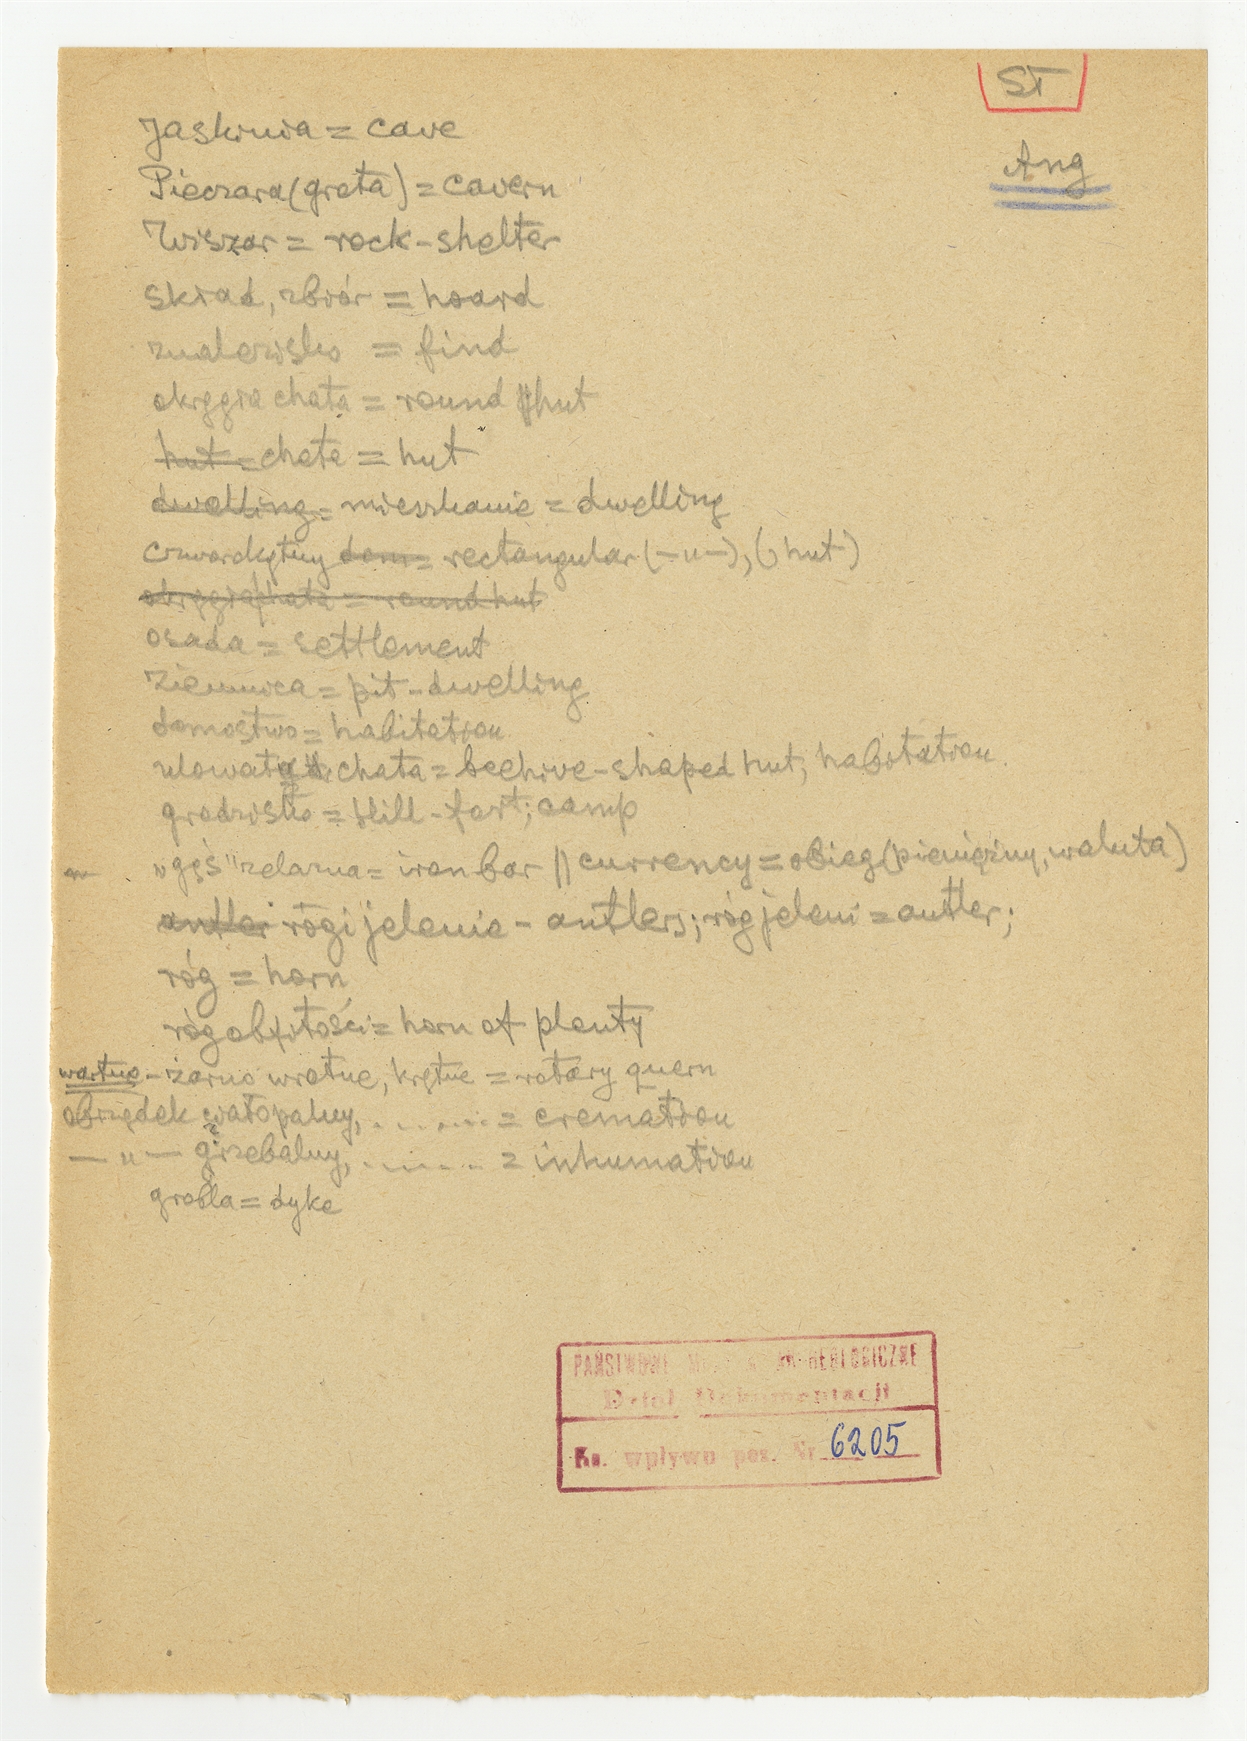 St
Ang
Jaskinia = cave
Pieczara (grota) = cavern
Zwiszar = rock-shelter
skład, zbiór = hoard
znalezisko = find
okrągła chata = round hut
hut = chata = hut
dwelling = mieszkanie = dwelling
czworokątny dom = rectangular (—„—), (, hut)
okrągła chata = round hut
osada = settlement
Ziemnica = pit-dwelling
domostwo = habitation
ulowata chata = beehive-shaped hut, habitation
grodzisko = Hill-fort; camp
„gęś" żelazna = iron bar || currency = obieg (pieniężny, waluta)
antler rogi jelenie - antlers; róg jeleni = antler;
róg = horn
róg obfitości = horn of plenty
żarno wrotne, krętne = rotary quern
obrządek ciałopalny, ........ = cremation
—„— grzebalny, ........ = inhumation
grobla = dyke
PAŃSTWOWE MUZEUM ARCHEOLOGICZNE
Dział Dokumentacji
Ks. wpływu poz. Nr 6205